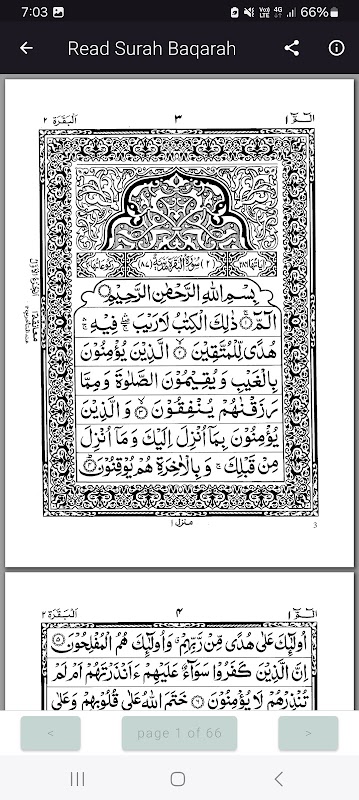 7:03
4G
66%
Read Surah Baqarah
الٓمّٓ ١
٣
اَلْبَقَرَة ٢
بِسْمِ اللهِ الرَّحْمٰنِ الرَّحِيْمِ
الٓمّٓ ۚ ذٰلِكَ الْكِتٰبُ لَا رَيْبَ ۛ فِيْهِ ۛ
هُدًى لِّلْمُتَّقِيْنَ ۙ الَّذِيْنَ يُؤْمِنُوْنَ
بِالْغَيْبِ وَيُقِيْمُوْنَ الصَّلٰوةَ وَمِمَّا
رَزَقْنٰهُمْ يُنْفِقُوْنَ ۙ وَالَّذِيْنَ
يُؤْمِنُوْنَ بِمَاۤ اُنْزِلَ اِلَيْكَ وَمَاۤ اُنْزِلَ
مِنْ قَبْلِكَ ۚ وَبِالْاٰخِرَةِ هُمْ يُوْقِنُوْنَ ؕ
منزل ١
3
الٓمّٓ ١
٤
اَلْبَقَرَة ٢
اُولٰٓئِكَ عَلٰى هُدًى مِّنْ رَّبِّهِمْ ۗ وَاُولٰٓئِكَ هُمُ الْمُفْلِحُوْنَ ٥
اِنَّ الَّذِيْنَ كَفَرُوْا سَوَآءٌ عَلَيْهِمْ ءَاَنْذَرْتَهُمْ اَمْ لَمْ
تُنْذِرْهُمْ لَا يُؤْمِنُوْنَ ٦ خَتَمَ اللهُ عَلٰى قُلُوْبِهِمْ وَعَلٰى
< page 1 of 66 >